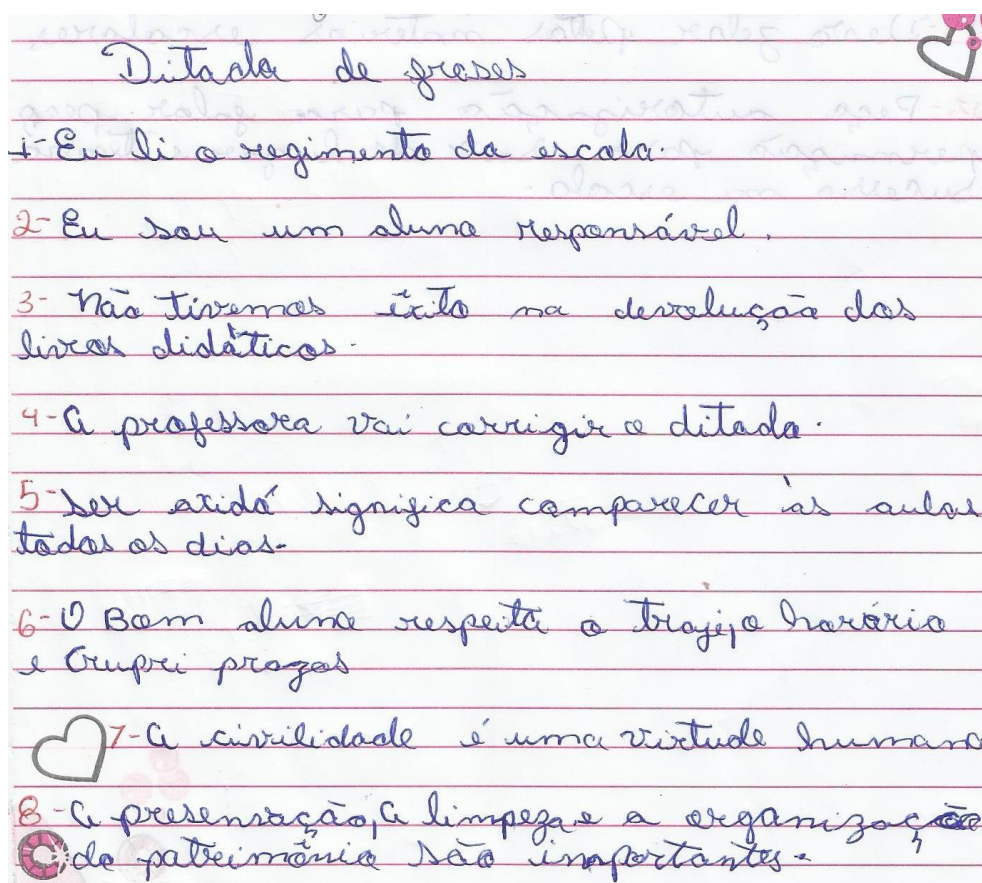 Ditado de frases
1- Eu li o regimento da escola.
2- Eu sou um aluno responsável.
3- Não tivemos êxito na devolução dos
livros didáticos.
4- A professora vai corrigir o ditado.
5- Ser acido signifíca comparecer às aulas
todos os dias.
6- O Bom aluno respeita o trajejo horário
e Crupri prazos
7- A civilidade é uma virtude humana
8- A presenvação, A limpeza e a organização
do patrimônio são importantes.